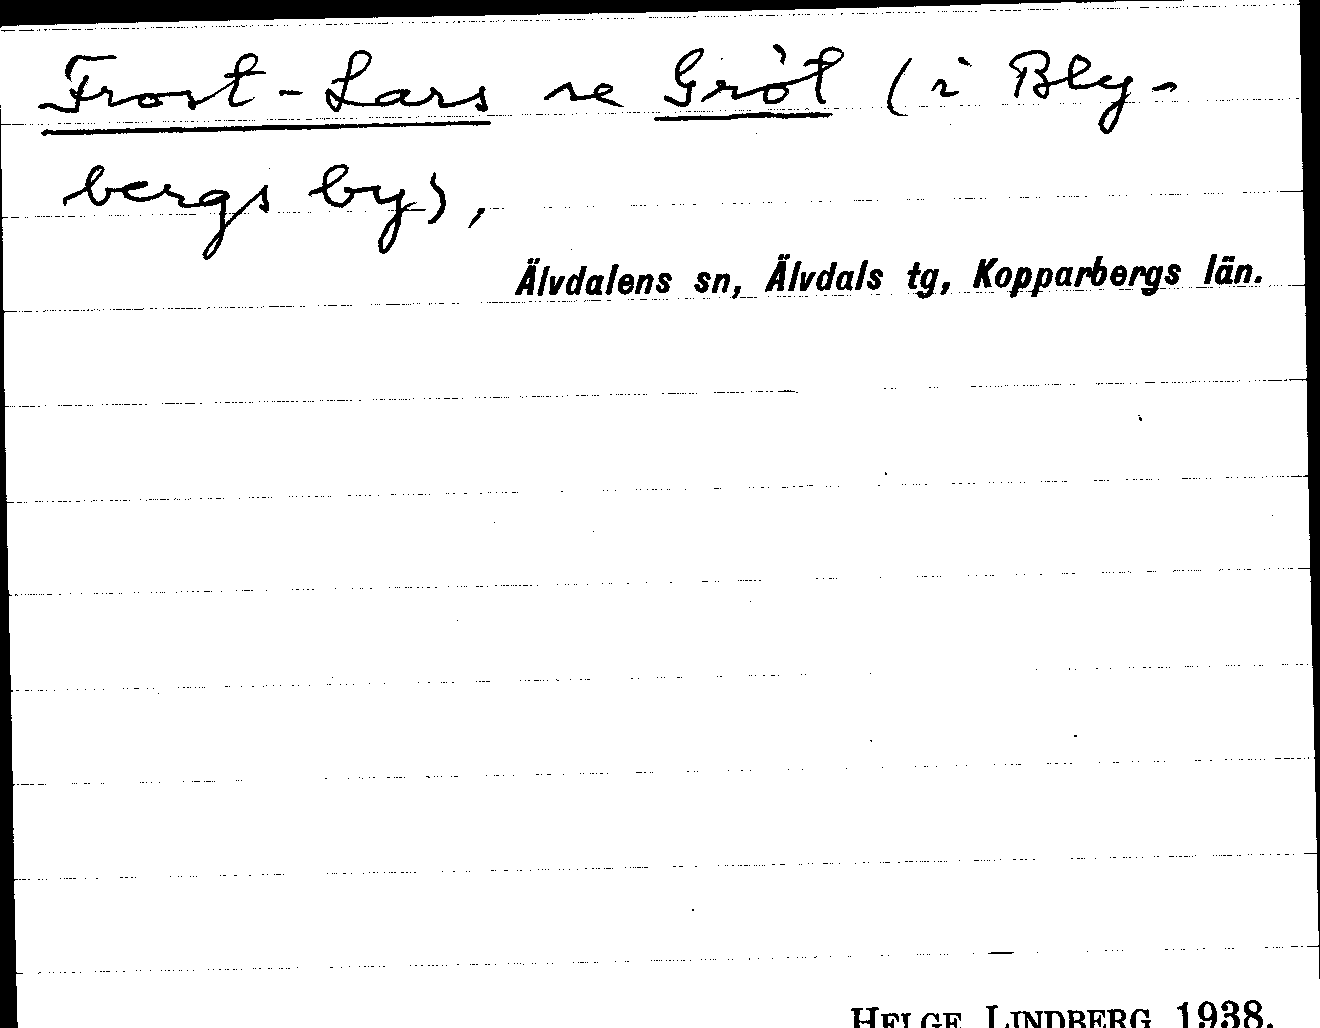 Frost-Lars se Gröt (i Bly-
bergs by),
Älvdalens sn, Älvdals tg, Kopparbergs län.
HELGE LINDBERG 1938.